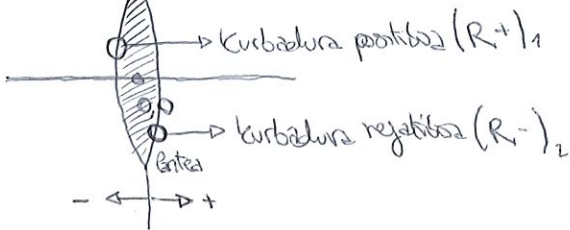 Kurbadura positiboa (R+)₁
Kurbadura negatiboa (R-)₂
lentea
- +